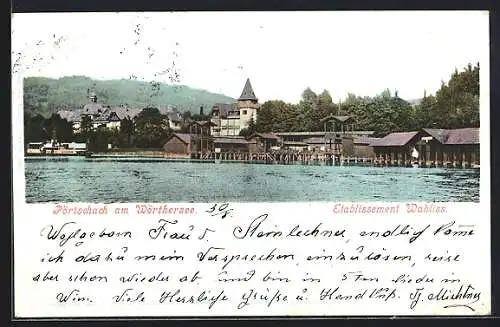 Pörtschach am Wörthersee. 30/8
Etablissement Wahliss.
Frau v. Steinlechner, endlich komme
ich dazu mein Versprechen einzulösen, reise
aber schon wieder ab und bin in 5 ten wieder in
Wien. Viele Herzliche Grüße u. Handkuß.